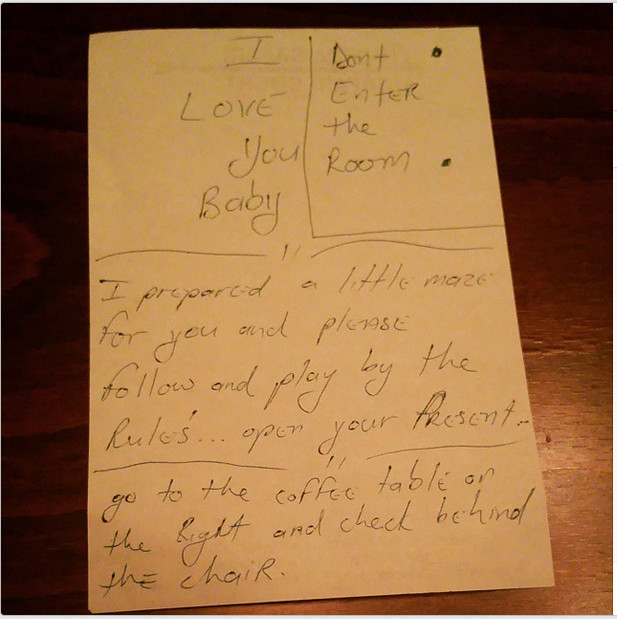 I
LOVE
You
Baby
Dont
Enter
the
Room
I prepared a little maze
for you and please
follow and play by the
Rules... open your Present..
go to the coffee table on
the Right and check behind
the chair.